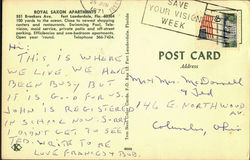 ROYAL SAXON APARTMENTS
551 Breakers Ave. Fort Lauderdale, Fla. 33304
100 yards to the ocean. Close to several shopping
centers and restaurants. Swimming Pool, tele-
vision, maid service, private patio and off-street
parking. Efficiencies and one-bedroom apartments.
Open year 'round. Telephone 566-7424.
SAVE
YOUR VISION
WEEK
POST CARD
Address
Hi;
THIS IS WHERE
WE LIVE. WE HAVE
BEEN BUSY BUT
IT IS GOOD FOR US.
JOHN IS REGISTERED
IN SCHOOL NOW. SORRY
I DIDN'T GET TO SEE
TED. WRITE TO ME
LOVE FRANCES & BOB.
Mr & Mrs. McDonnell
& Ted
146 E. NORTHWOOD
AV.
Columbus, Ohio
K